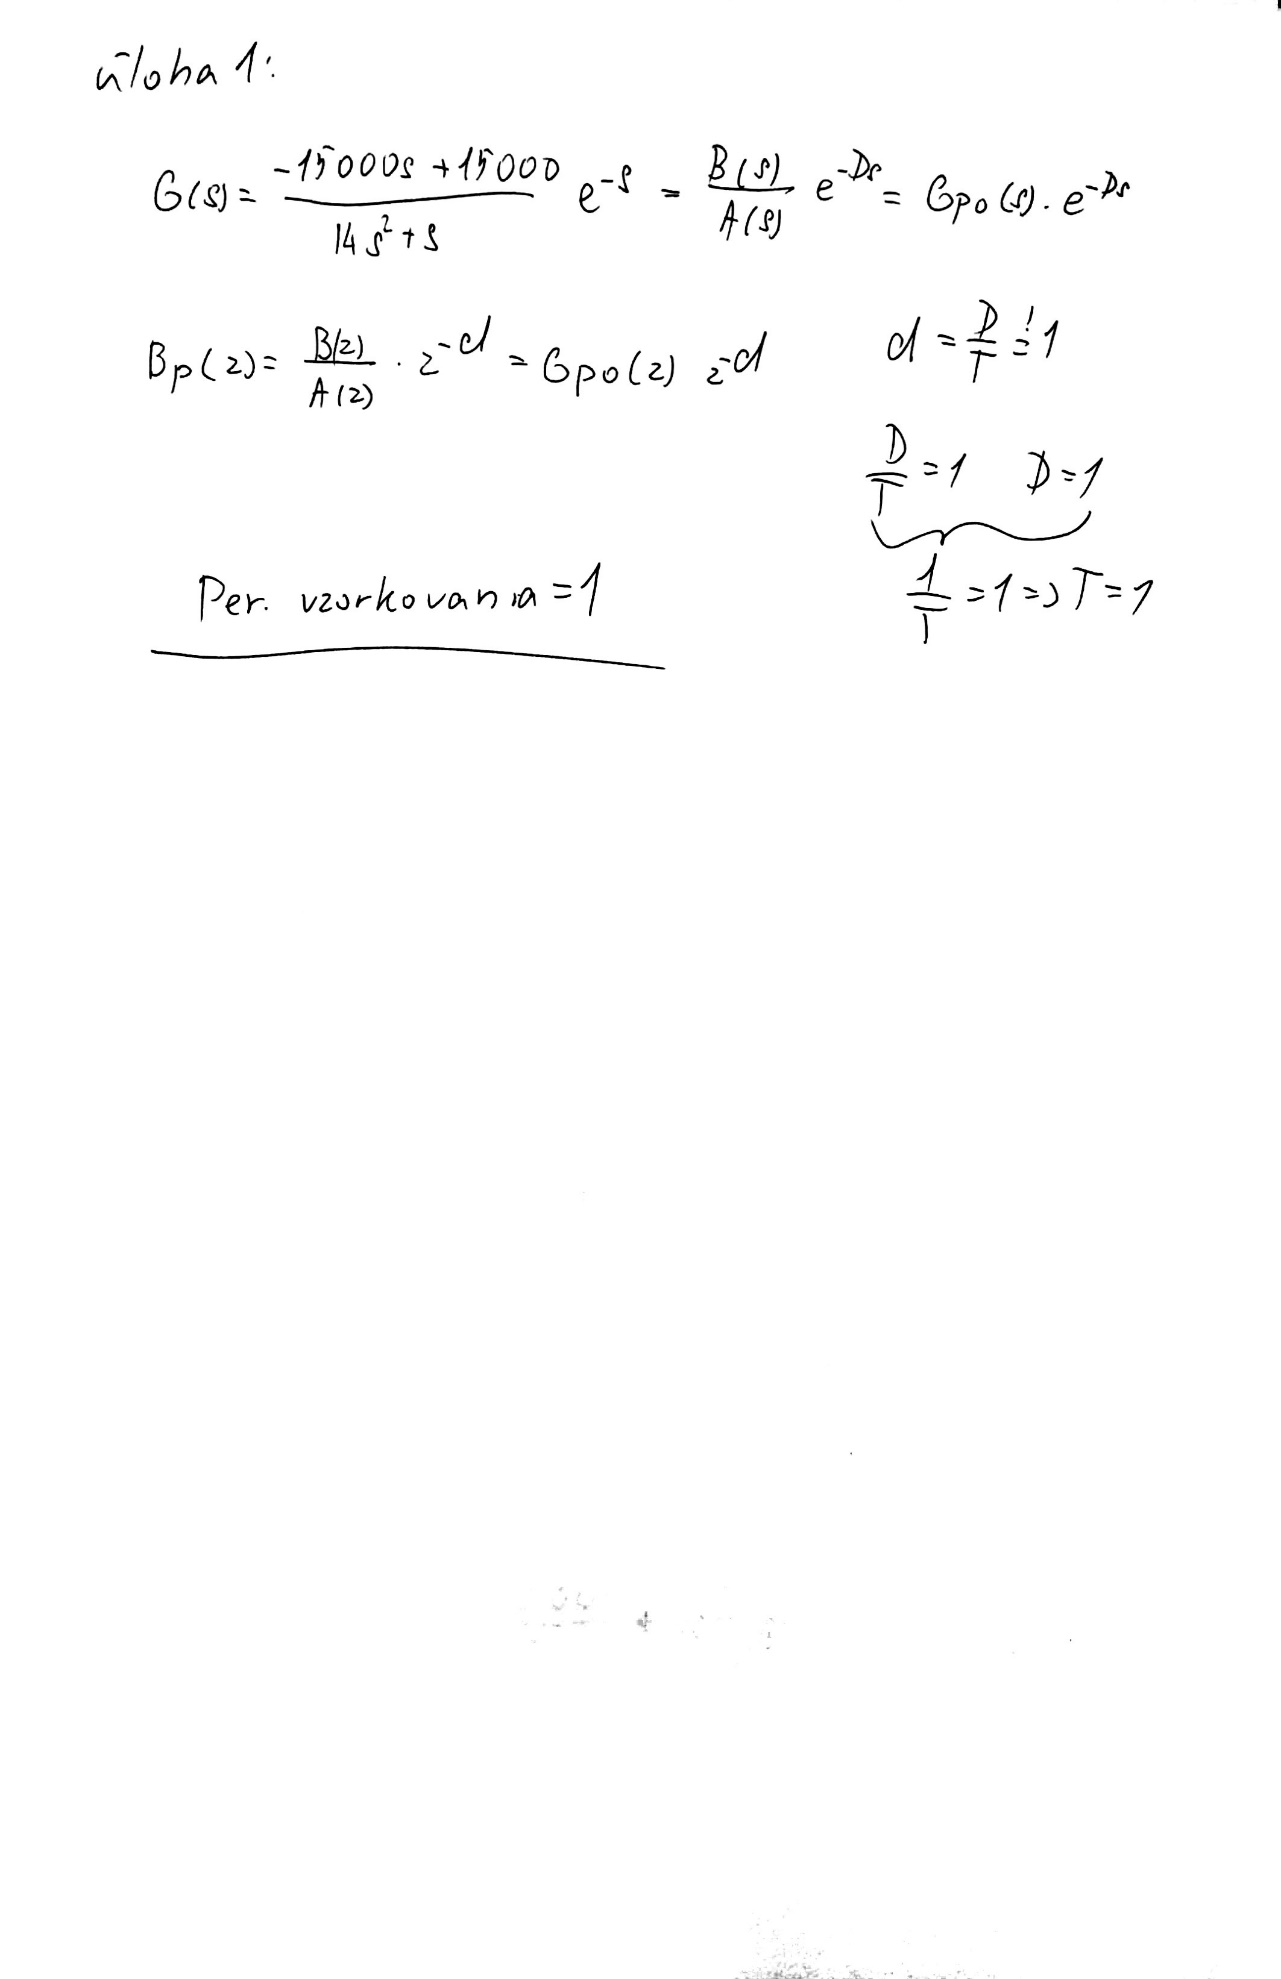 úloha 1:
G(s) = (-15000s + 15000)/(14s² + s) e^-s = B(s)/A(s) e^-Ds = Gpo(s) . e^-Ds
Bp(z) = B(z)/A(z) . z^-d = Gpo(z) z^-d
d = D/T =! 1
D/T = 1 D = 1
1/T = 1 => T = 1
Per. vzorkovania = 1